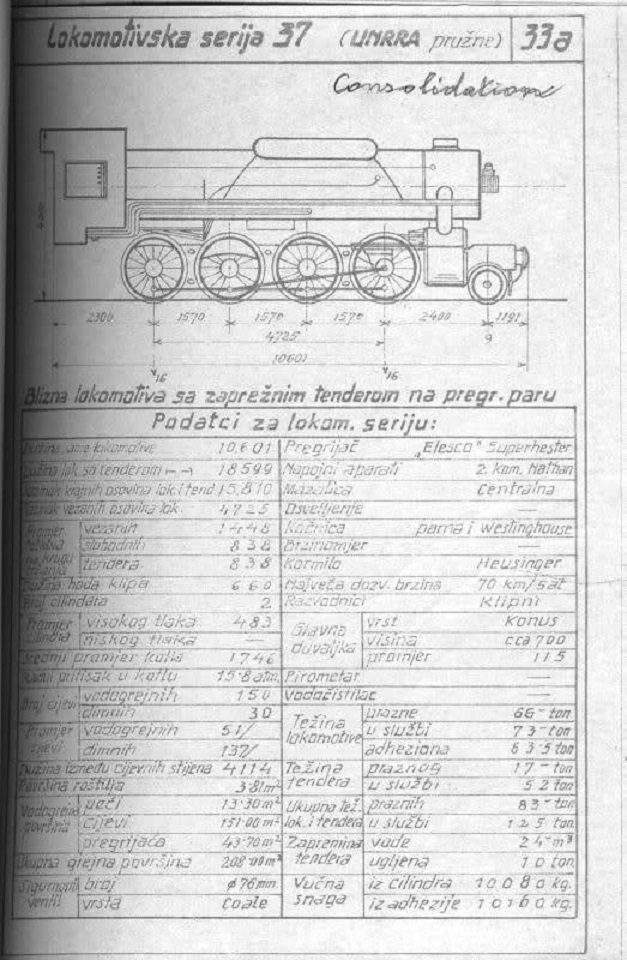 Lokomotivska serija 37 (UNRRA pružne) 33a
Consolidation
2300 1570 1570 1570 2400 1191
4725 9
10601
16 16
Blizna lokomotiva sa zaprežnim tenderom na pregr. paru
Podatci za lokom. seriju:
Dužina same lokomotive 10.601 Pregrijač „Elesco" Superhester
Dužina lok. sa tenderom 18599 Napojni aparati 2. kom. Nathan
Razmak krajnih osovina lok. i tend 15.810 Mazalica Centralna
Razmak vezanih osovina lok. 4725 Osvetljenje —
Promjer vezanih 1448 Kočnica parna i Westinghouse
slobodnih 838 Brzinomjer —
tendera 838 Kormilo Heusinger
Dužina hoda klipa 660 Najveća dozv. brzina 70 km/sat
Broj cilindara 2 Razvodnici Klipni
Promjer cilindra visokog tlaka 483 Glavna duvaljka vrst Konus
niskog tlaka — visina cca 700
Srednji promjer kotla 1746 promjer 115
Radni pritisak u kotlu 15.8 atm. Pirometar —
Broj cijevi vodogrejnih 150 Vodočistilac —
dimnih 30 Težina lokomotive prazne 66— ton
Promjer cijevi vodogrejnih 51/ u službi 73— ton
dimnih 137/ adheziona 63.5 ton
Dužina između cijevnih stijena 4114 Težina tendera praznog 17— ton
Površina roštilja 3.81 m² u službi 52 ton
Vodogrejna površina peći 13.30 m² Ukupna tež. lok. i tendera praznih 83— ton
cijevi 151.00 m² u službi 125 ton
pregrijača 43.70 m² Zapremina tendera vode 24— m³
Ukupna grejna površina 208.00 m² ugljena 10 ton
Sigurnosni ventil broj ø 76 mm Vučna snaga iz cilindra 10080 kg.
vrsta Coale iz adhezije 10160 kg.